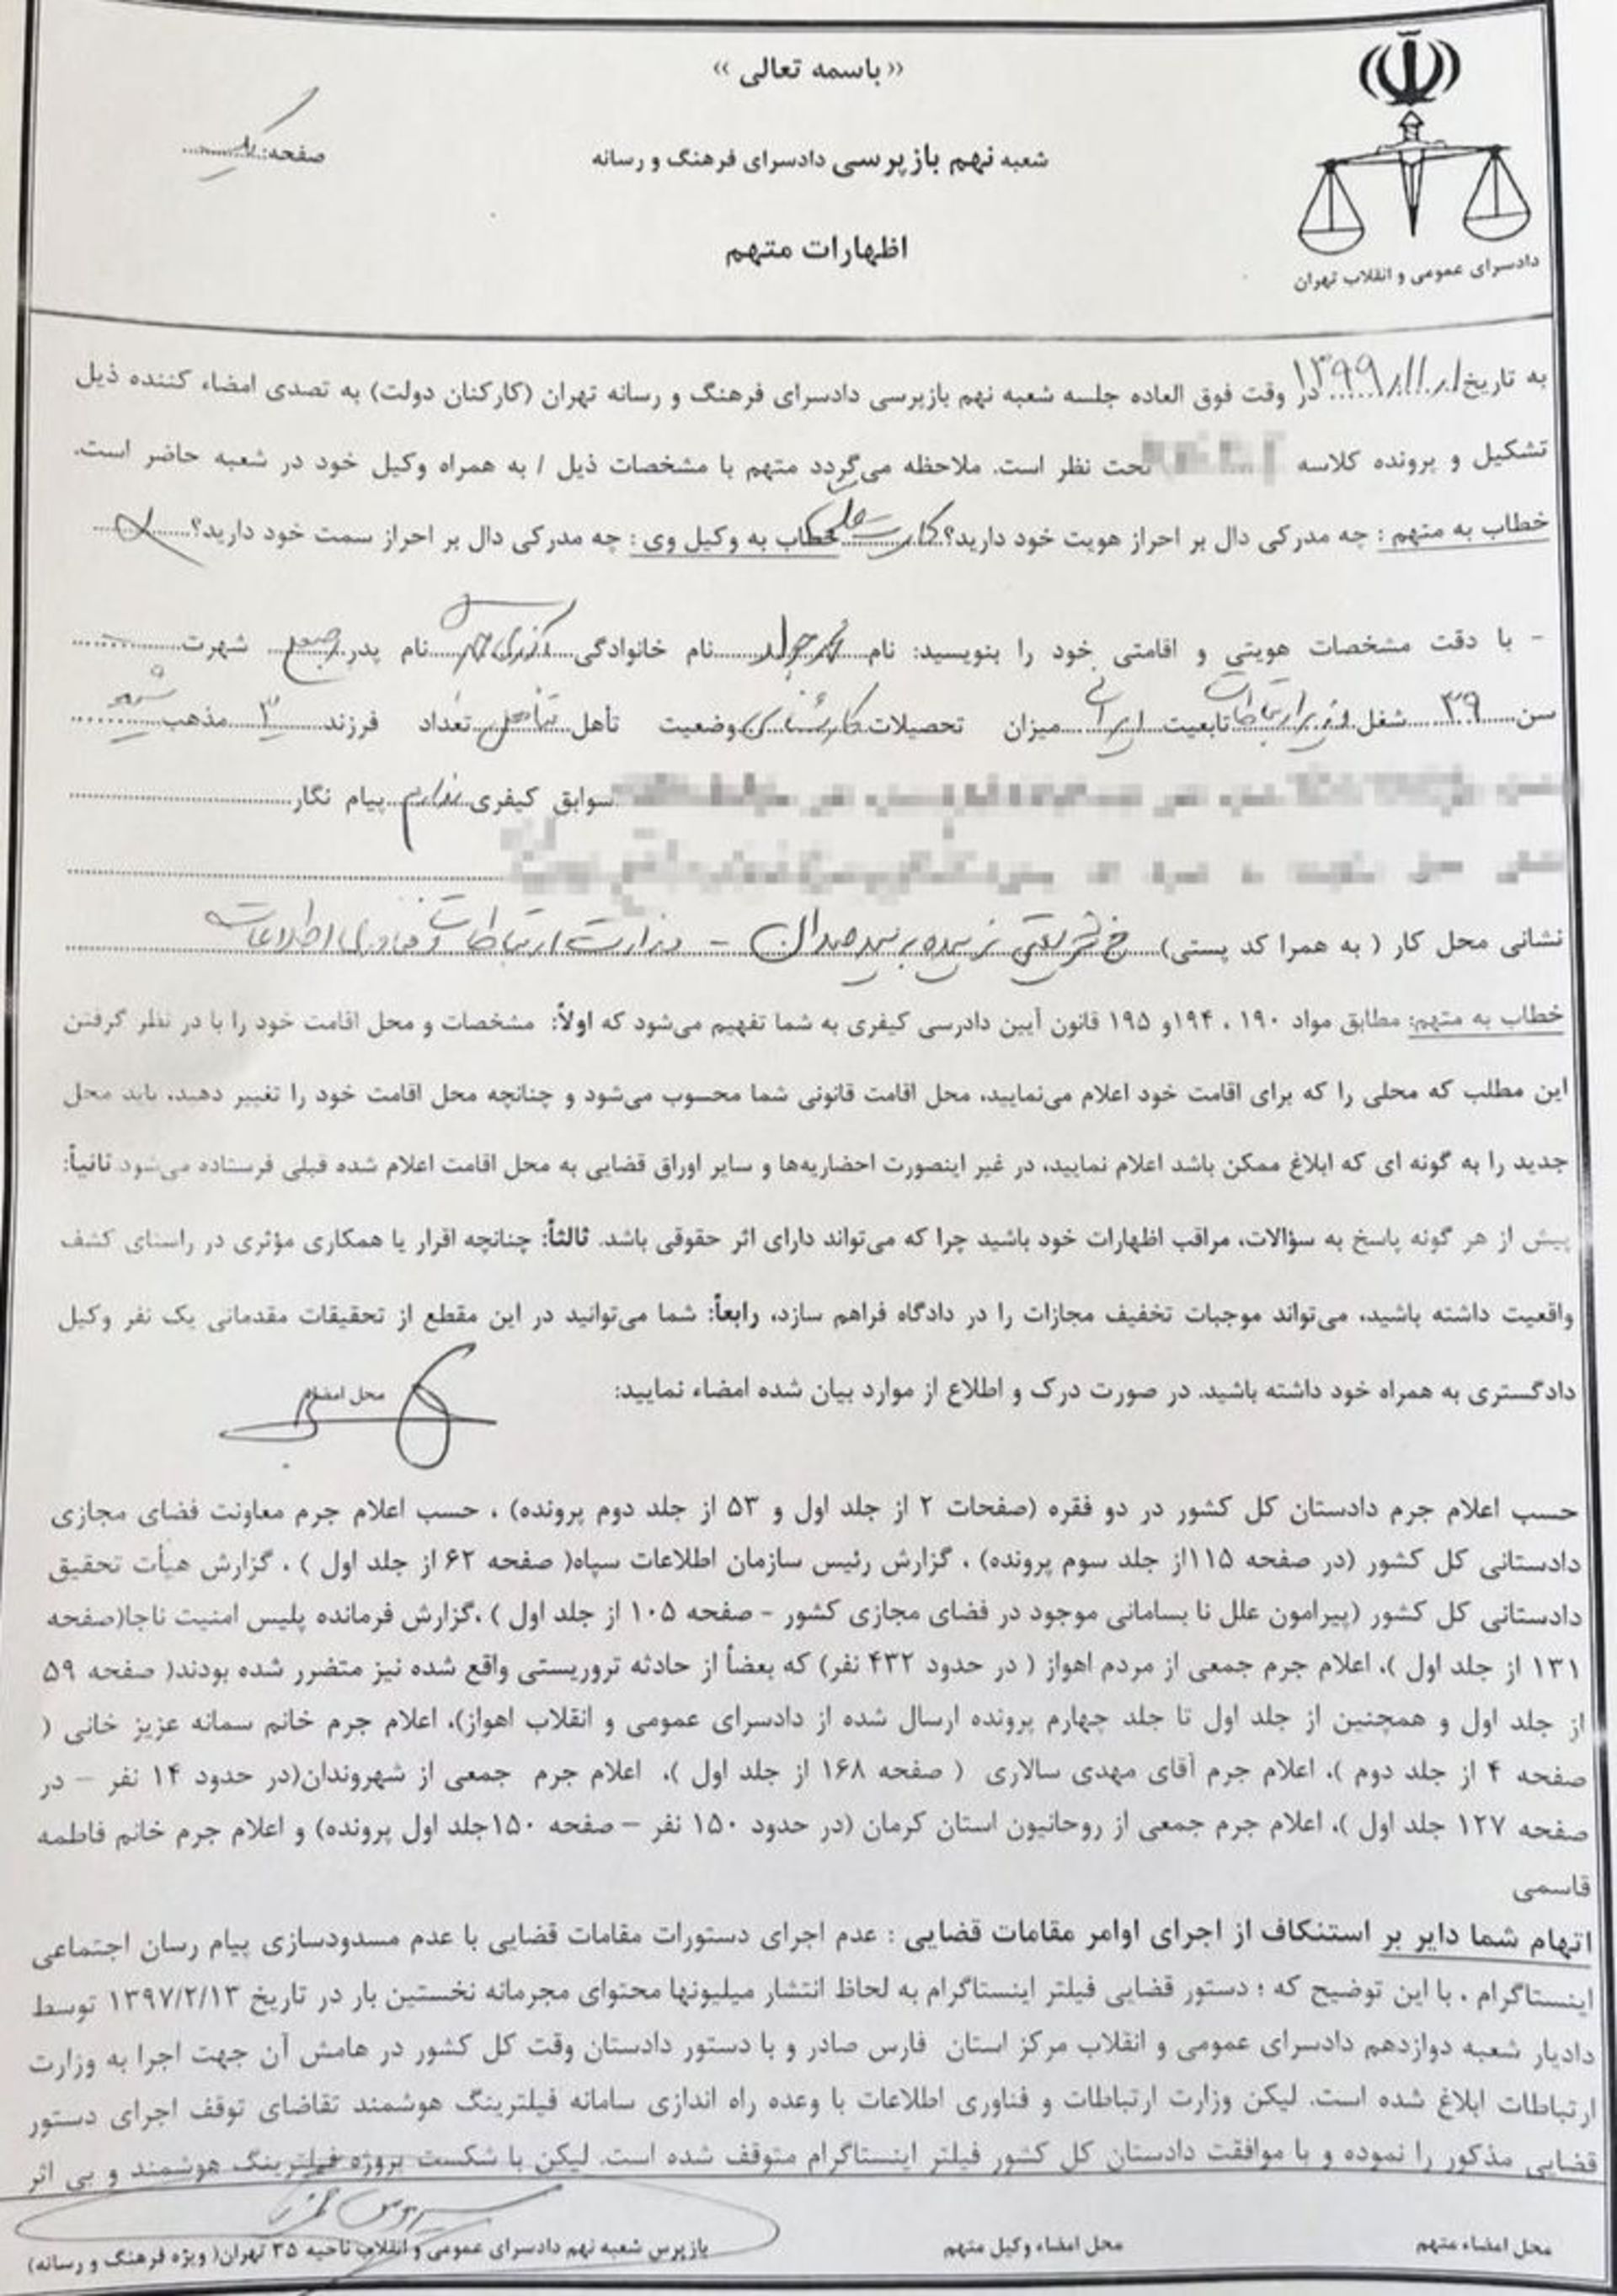 «باسمه تعالی»
شعبه نهم بازپرسی دادسرای فرهنگ و رسانه
صفحه: یک
اظهارات متهم
دادسرای عمومی و انقلاب تهران
به تاریخ ۱۳۹۹/۱۱/۱ در وقت فوق العاده جلسه شعبه نهم بازپرسی دادسرای فرهنگ و رسانه تهران (کارکنان دولت) به تصدی امضاء کننده ذیل
تشکیل و پرونده کلاسه تحت نظر است. ملاحظه می‌گردد متهم با مشخصات ذیل / به همراه وکیل خود در شعبه حاضر است.
خطاب به متهم : چه مدرکی دال بر احراز هویت خود دارید؟ کارت ملی خطاب به وکیل وی : چه مدرکی دال بر احراز سمت خود دارید؟
- با دقت مشخصات هویتی و اقامتی خود را بنویسید: نام محمدجواد نام خانوادگی آذری جهرمی نام پدر شهرت
سن ۳۹ شغل وزیر ارتباطات تابعیت ایرانی میزان تحصیلات کارشناسی وضعیت تأهل متأهل تعداد فرزند ۳ مذهب شیعه
سوابق کیفری ندارم پیام نگار
نشانی محل کار ( به همرا کد پستی) خ شریعتی نرسیده به پل سیدخندان - وزارت ارتباطات و فناوری اطلاعات
خطاب به متهم: مطابق مواد ۱۹۰ ، ۱۹۴و ۱۹۵ قانون آیین دادرسی کیفری به شما تفهیم می‌شود که اولاً: مشخصات و محل اقامت خود را با در نظر گرفتن
این مطلب که محلی را که برای اقامت خود اعلام می‌نمایید، محل اقامت قانونی شما محسوب می‌شود و چنانچه محل اقامت خود را تغییر دهید، باید محل
جدید را به گونه ای که ابلاغ ممکن باشد اعلام نمایید، در غیر اینصورت احضاریه‌ها و سایر اوراق قضایی به محل اقامت اعلام شده قبلی فرستاده می‌شود ثانیاً:
پیش از هر گونه پاسخ به سؤالات، مراقب اظهارات خود باشید چرا که می‌تواند دارای اثر حقوقی باشد. ثالثاً: چنانچه اقرار یا همکاری مؤثری در راستای کشف
واقعیت داشته باشید، می‌تواند موجبات تخفیف مجازات را در دادگاه فراهم سازد، رابعاً: شما می‌توانید در این مقطع از تحقیقات مقدماتی یک نفر وکیل
دادگستری به همراه خود داشته باشید. در صورت درک و اطلاع از موارد بیان شده امضاء نمایید: محل امضاء
حسب اعلام جرم دادستان کل کشور در دو فقره (صفحات ۲ از جلد اول و ۵۳ از جلد دوم پرونده) ، حسب اعلام جرم معاونت فضای مجازی
دادستانی کل کشور (در صفحه ۱۱۵از جلد سوم پرونده) ، گزارش رئیس سازمان اطلاعات سپاه( صفحه ۶۲ از جلد اول ) ، گزارش هیأت تحقیق
دادستانی کل کشور (پیرامون علل نا بسامانی موجود در فضای مجازی کشور - صفحه ۱۰۵ از جلد اول ) ،گزارش فرمانده پلیس امنیت ناجا(صفحه
۱۳۱ از جلد اول )، اعلام جرم جمعی از مردم اهواز ( در حدود ۴۳۲ نفر) که بعضاً از حادثه تروریستی واقع شده نیز متضرر شده بودند( صفحه ۵۹
از جلد اول و همچنین از جلد اول تا جلد چهارم پرونده ارسال شده از دادسرای عمومی و انقلاب اهواز)، اعلام جرم خانم سمانه عزیز خانی (
صفحه ۴ از جلد دوم )، اعلام جرم آقای مهدی سالاری ( صفحه ۱۶۸ از جلد اول )، اعلام جرم جمعی از شهروندان(در حدود ۱۴ نفر – در
صفحه ۱۲۷ جلد اول )، اعلام جرم جمعی از روحانیون استان کرمان (در حدود ۱۵۰ نفر – صفحه ۱۵۰جلد اول پرونده) و اعلام جرم خانم فاطمه
قاسمی
اتهام شما دایر بر استنکاف از اجرای اوامر مقامات قضایی : عدم اجرای دستورات مقامات قضایی با عدم مسدودسازی پیام رسان اجتماعی
اینستاگرام ، با این توضیح که ؛ دستور قضایی فیلتر اینستاگرام به لحاظ انتشار میلیونها محتوای مجرمانه نخستین بار در تاریخ ۱۳۹۷/۲/۱۳ توسط
دادیار شعبه دوازدهم دادسرای عمومی و انقلاب مرکز استان فارس صادر و با دستور دادستان وقت کل کشور در هامش آن جهت اجرا به وزارت
ارتباطات ابلاغ شده است. لیکن وزارت ارتباطات و فناوری اطلاعات با وعده راه اندازی سامانه فیلترینگ هوشمند تقاضای توقف اجرای دستور
قضایی مذکور را نموده و با موافقت دادستان کل کشور فیلتر اینستاگرام متوقف شده است. لیکن با شکست پروژه فیلترینگ هوشمند و بی اثر
محل امضاء متهم
محل امضاء وکیل متهم
بازپرس شعبه نهم دادسرای عمومی و انقلاب ناحیه ۳۵ تهران( ویژه فرهنگ و رسانه)